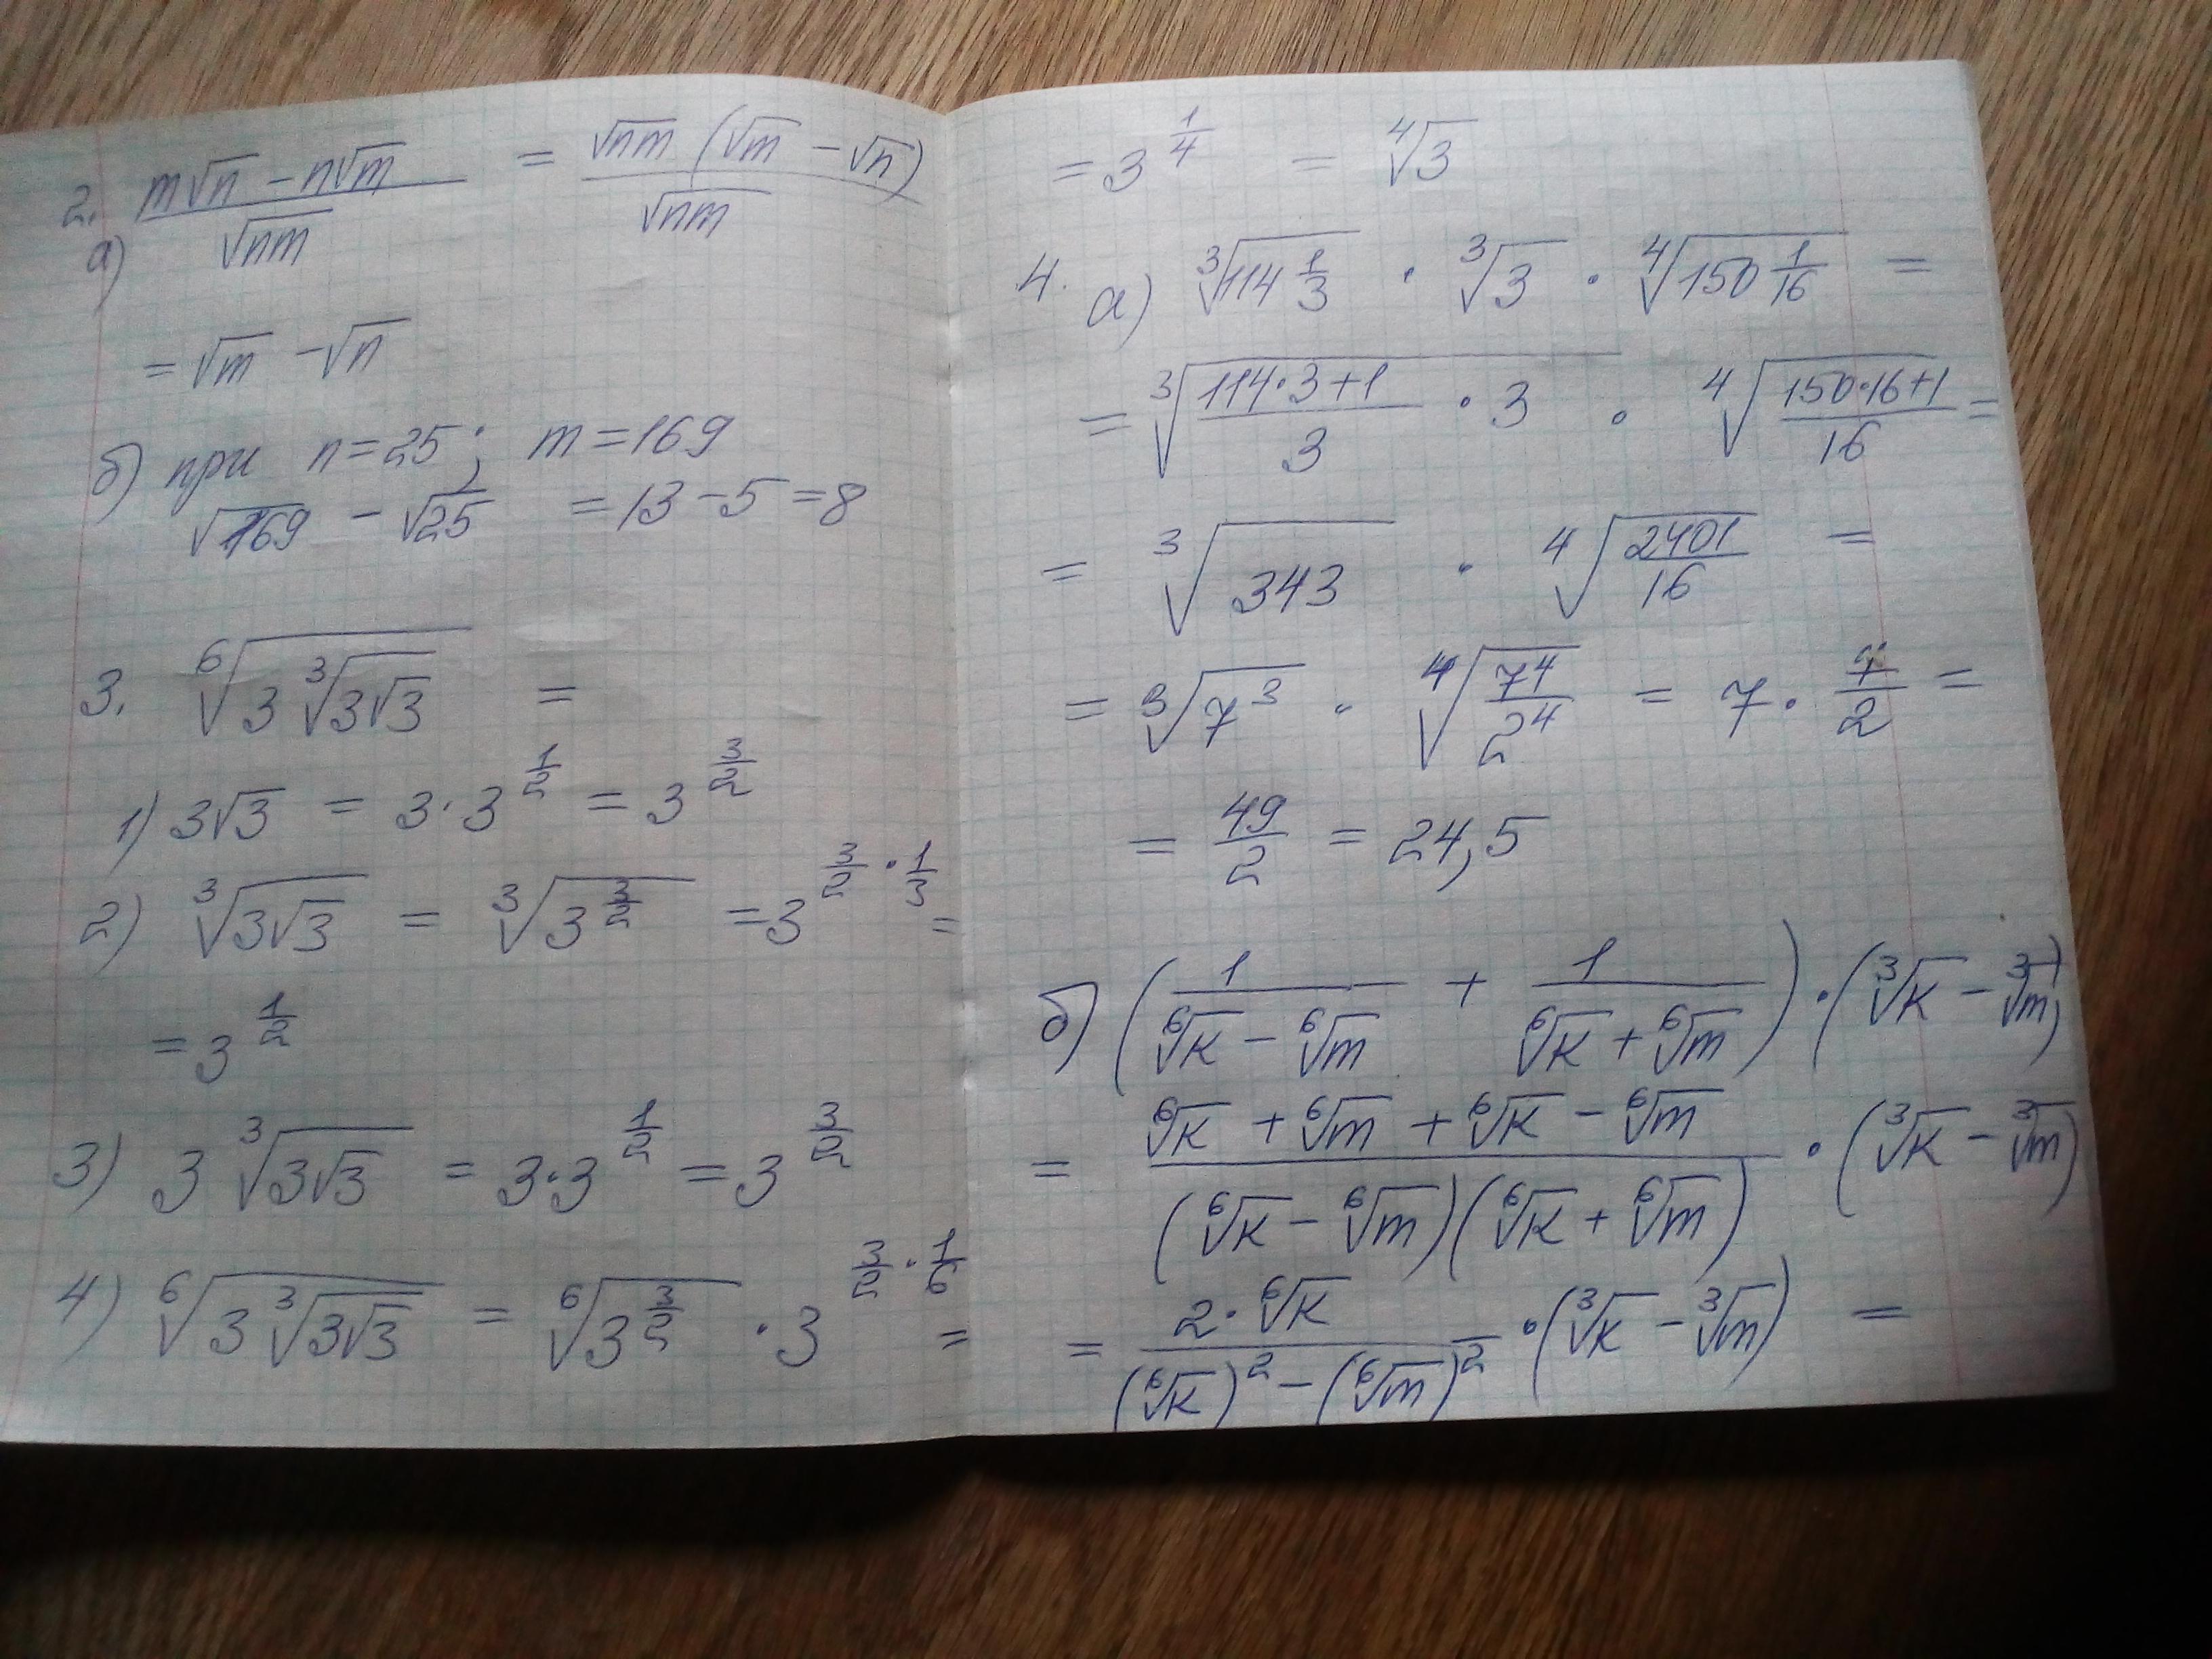 2. а) (m√n − n√m)/√nm = √nm (√m − √n)/√nm
= √m − √n
б) при n = 25; m = 169
√169 − √25 = 13 − 5 = 8
3. ⁶√(3 ³√(3√3)) =
1) 3√3 = 3·3^(1/2) = 3^(3/2)
2) ³√(3√3) = ³√(3^(3/2)) = 3^(3/2 · 1/3) =
= 3^(1/2)
3) 3 ³√(3√3) = 3·3^(1/2) = 3^(3/2)
4) ⁶√(3 ³√(3√3)) = ⁶√(3^(3/2)) · 3^(3/2 · 1/6) =
= 3^(1/4) = ⁴√3
4. а) ³√(114 1/3) · ³√3 · ⁴√(150 1/16) =
= ³√((114·3+1)/3 · 3) · ⁴√((150·16+1)/16) =
= ³√343 · ⁴√(2401/16) =
= ³√(7³) · ⁴√(7⁴/2⁴) = 7 · 7/2 =
= 49/2 = 24,5
б) (1/(⁶√k − ⁶√m) + 1/(⁶√k + ⁶√m)) · (³√k − ³√m)
= (⁶√k + ⁶√m + ⁶√k − ⁶√m)/((⁶√k − ⁶√m)(⁶√k + ⁶√m)) · (³√k − ³√m)
= 2·⁶√k/((⁶√k)² − (⁶√m)²) · (³√k − ³√m) =